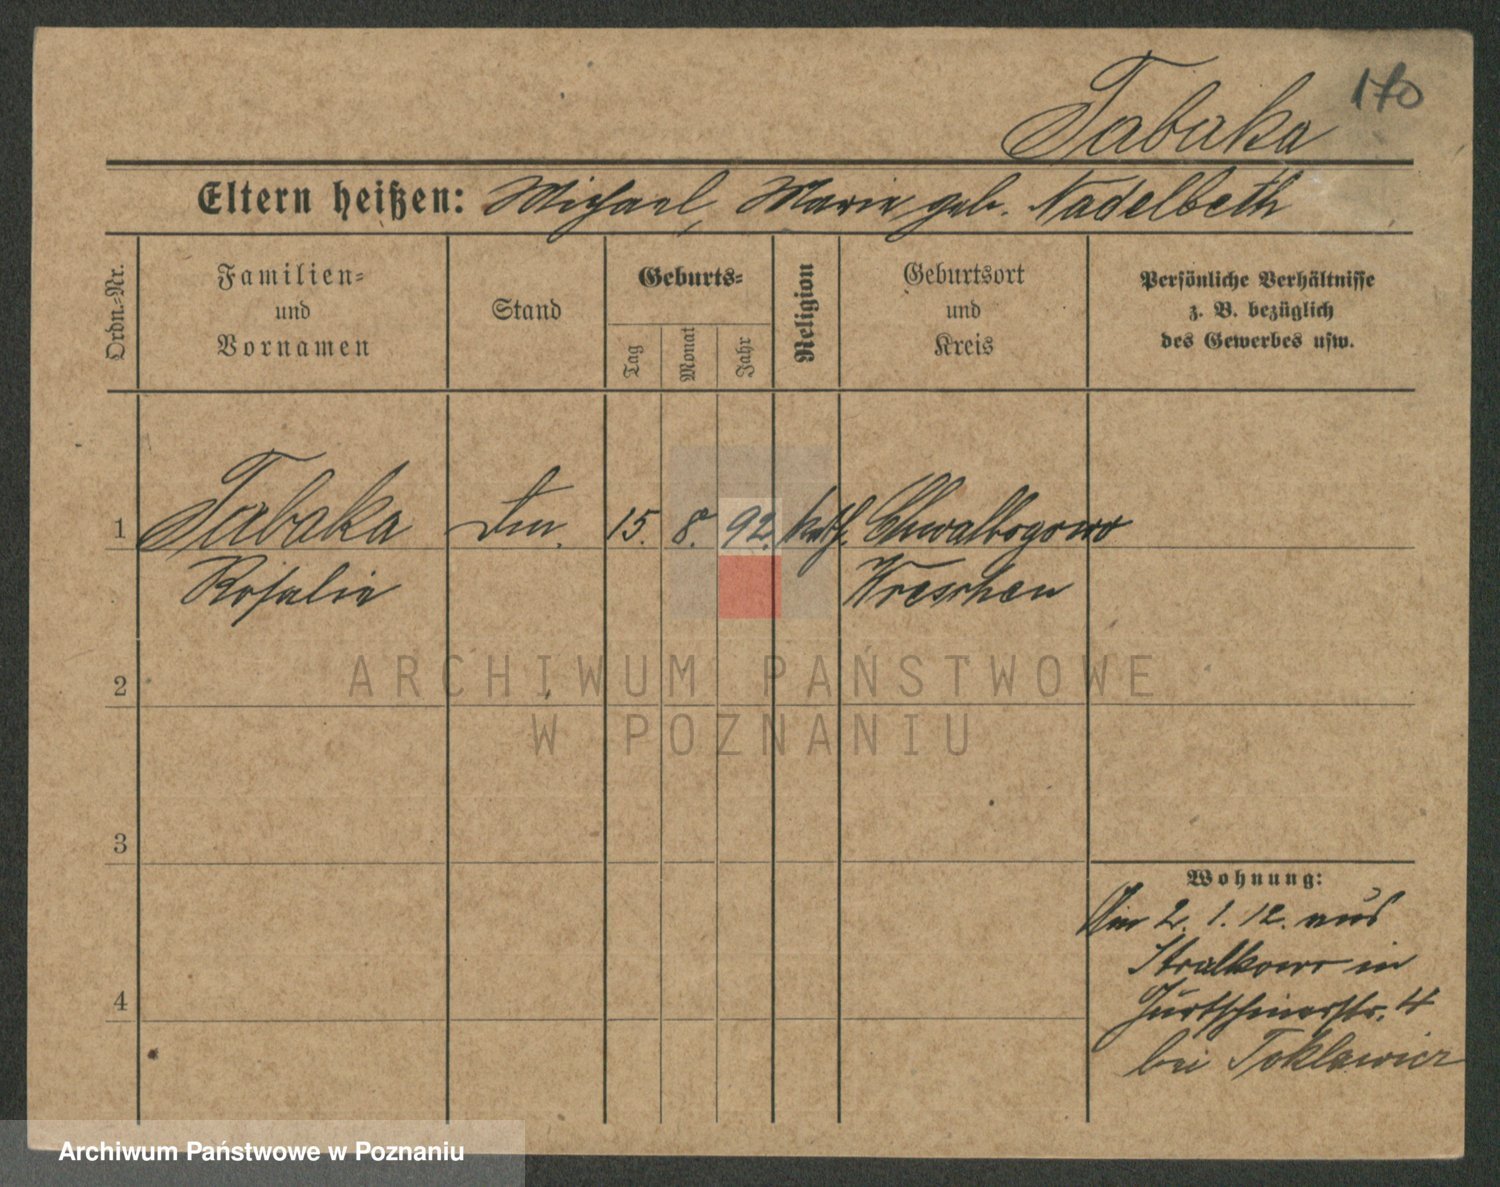 170
Tabaka
Eltern heißen: Michael, Marie geb. Nadelbeth
Ordn.-Nr.
Familien- und Vornamen
Stand
Geburts-
Tag
Monat
Jahr
Religion
Geburtsort und Kreis
Persönliche Verhältnisse z. B. bezüglich des Gewerbes usw.
1 Tabaka 15. 8. 92. kath. Chwalbogowo
Rosalie Wreschen
2
3
4
Wohnung:
Am 2. 1. 12. aus
Stralkowo in
4
bei Toklawicz
ARCHIWUM PAŃSTWOWE
W POZNANIU
Archiwum Państwowe w Poznaniu